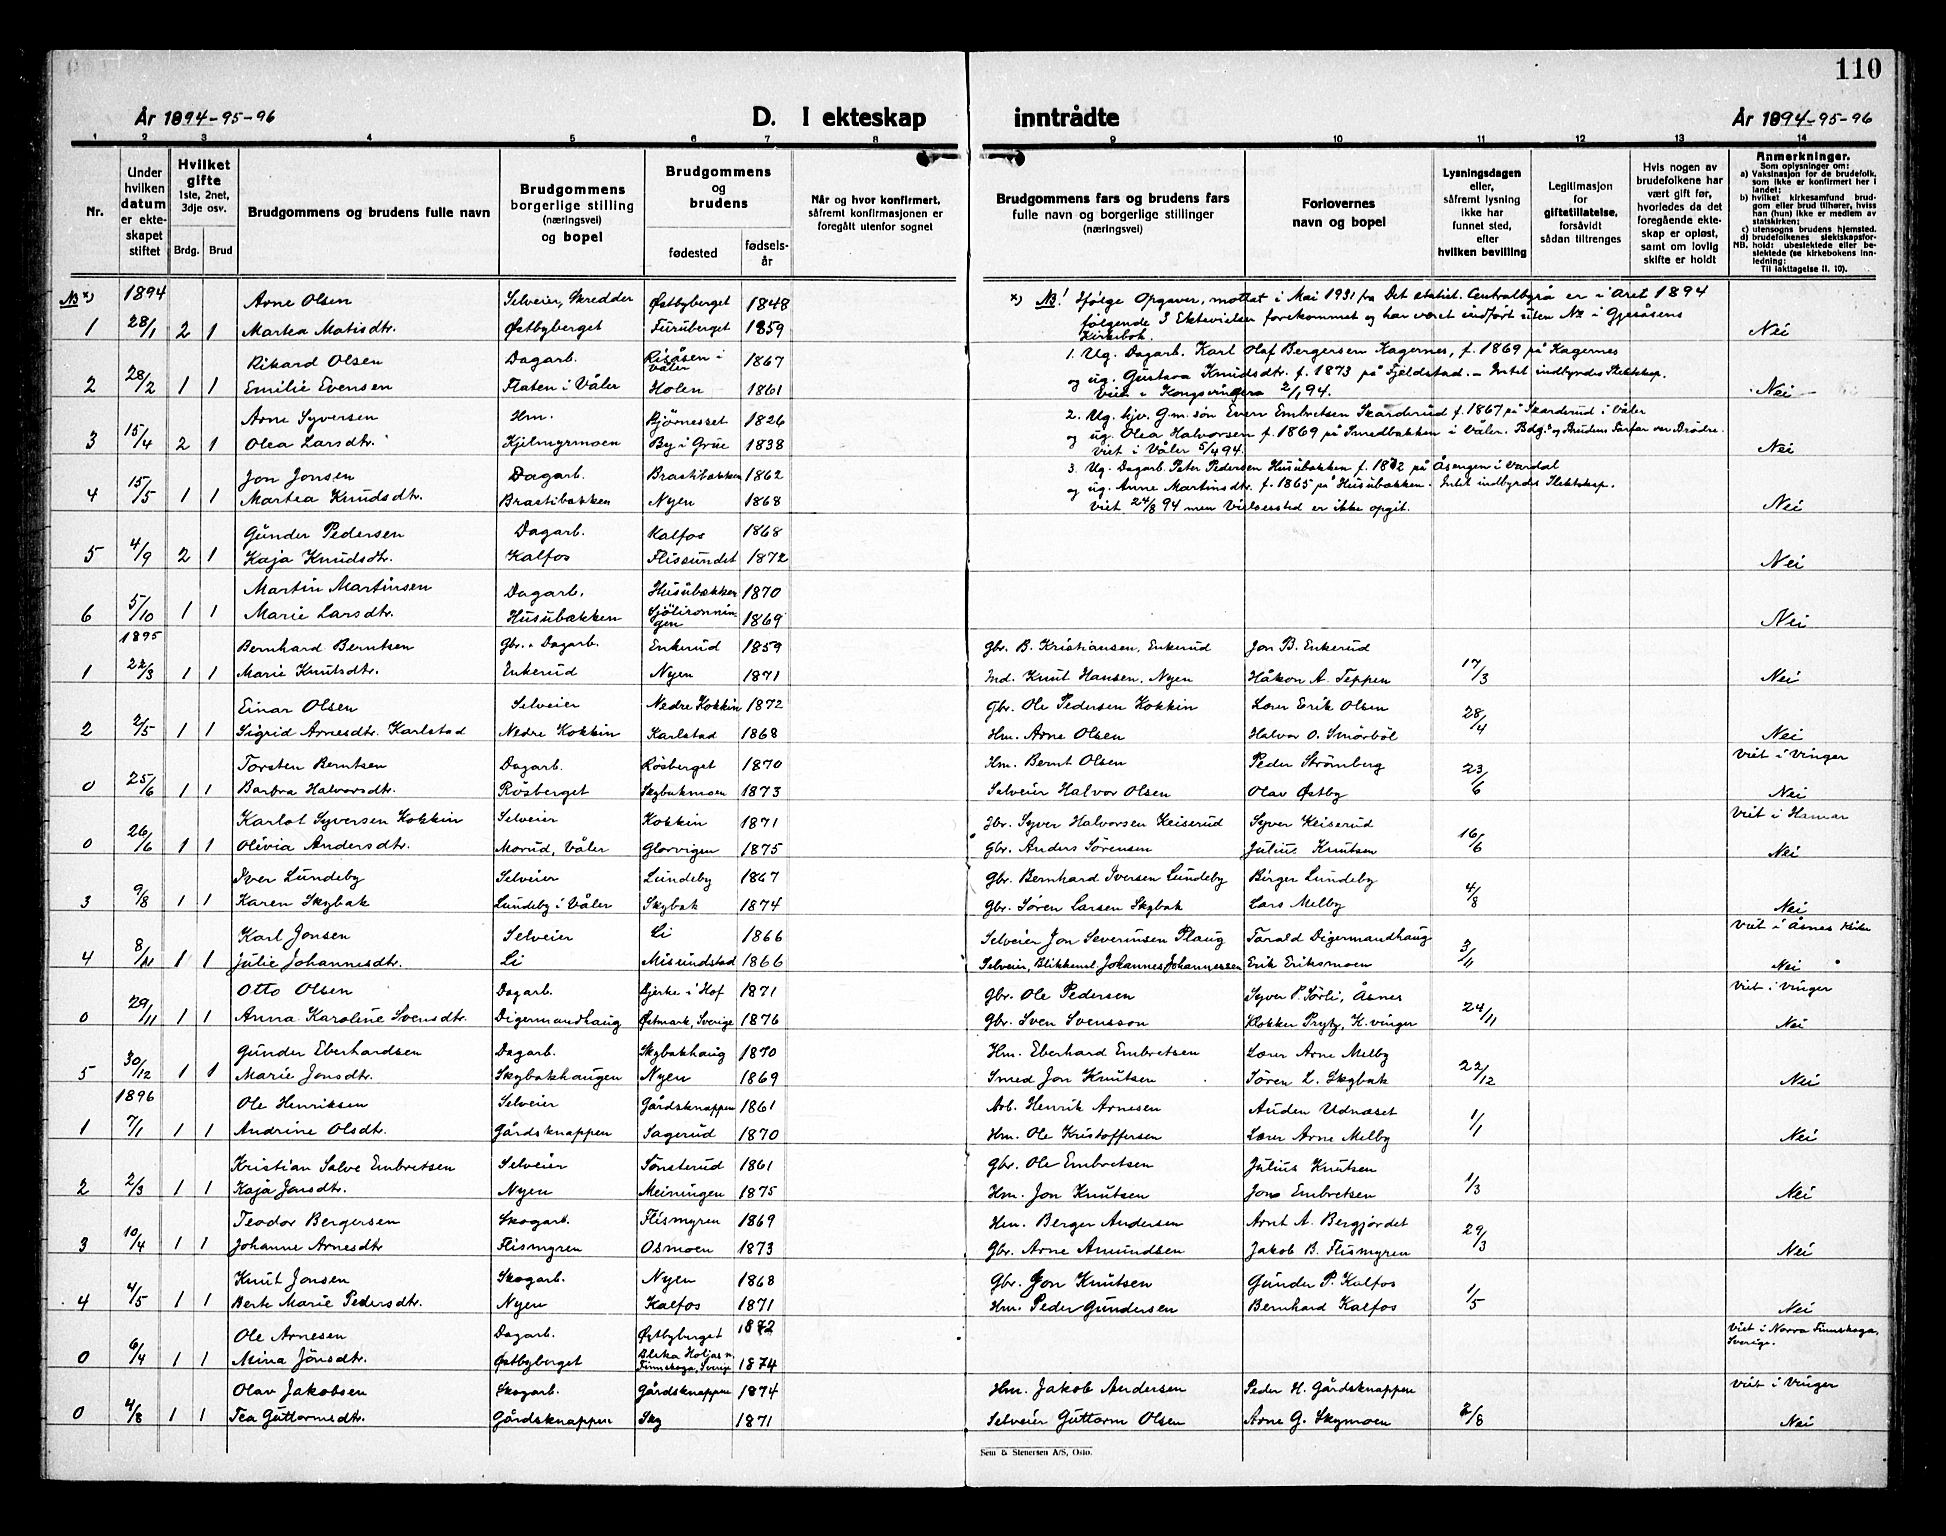 110
År 1894-95-96
D. I ekteskap
inntrådte
År 1894-95-96
1 2 3 4 5 6 7 8 9 10 11 12 13 14
Nr.
Under hvilken datum er ekteskapet stiftet
Hvilket gifte 1ste, 2net, 3dje osv.
Brdg. Brud
Brudgommens og brudens fulle navn
Brudgommens borgerlige stilling (næringsvei) og bopel
Brudgommens og brudens
fødested
fødsels-år
Når og hvor konfirmert, såfremt konfirmasjonen er foregått utenfor sognet
Brudgommens fars og brudens fars fulle navn og borgerlige stillinger (næringsvei)
Forlovernes navn og bopel
Lysningsdagen eller, såfremt lysning ikke har funnet sted, efter hvilken bevilling
Legitimasjon for giftetillatelse, forsåvidt sådan tiltrenges
Hvis nogen av brudefolkene har vært gift før, hvorledes da det foregående ekteskap er opløst, samt om lovlig skifte er holdt
Anmerkninger.
Som oplysninger om:
a) Vaksinasjon for de brudefolk, som ikke er konfirmert her i landet;
b) hvilket kirkesamfund brudgom eller brud tilhører, hviss han (hun) ikke er medlem av statskirken;
c) utensogns brudens hjemsted.
d) brudefolkenes slektskapsforhold: ubeslektede eller beslektede (se kirkebokens innledning;
NB.
Til iakttagelse ll. 10).
NB x) 1894 Arne Olsen Selveier, Skredder Østbyberget 1848
1 28/1 2 1 Martea Matisdtr. Østbyberget Furuberget 1859 Nei
x) NB! Ifølge Opgaver, mottat i Mai 1931 fra Det statist. Centralbyrå er i året 1894
følgende 3 Ektevielser forekommet og har været indført uten Nr i Gjesåsens
Kirkebok.
Rikard Olsen Dagarb. Risåsen i Våler 1867
2 28/2 1 1 Emilie Evensen Flaten i Våler Holen 1861 Nei
1. Ug. Dagarb. Karl Olaf Bergersen Kagernes, f. 1869 på Kagernes
og ug. Gustava Knudsdtr. f. 1873 på Fjeldstad. – Intet indbyrdes Slektskap.
Viet i Kongsvinger 2/1 94.
Arne Syversen Hm. Bjørnesset 1826
3 15/4 2 1 Olea Larsdtr. Kjelmyrmoen By i Grue 1838 Nei
2. Ug. Gjv. G.m. søn Even Embretsen Skårderud f. 1867 på Skårderud i Våler
og ug. Olea Halvorsen f. 1869 på Smedbakken i Våler. Bdg.s og Brudens Farfar var Brødre.
Viet i Våler 5/4 94.
Jon Jonsen Dagarb. Brastibakken 1862
4 15/5 1 1 Martea Knudsdtr. Brastibakken Nyen 1868 Nei
3. Ug. Dagarb. Peter Pedersen Husubakken f. 1872 på Åsengen i Vardal
og ug. Anne Martinsdtr. f. 1865 på Husubakken. Intet indbyrdes Slektskap.
Viet 24/8 94 men Vielsessted er ikke opgit.
Gunder Pedersen Dagarb. Kalfos 1868
5 4/9 2 1 Kaja Knudsdtr. Kalfos Flissundet 1872 Nei
Martin Martinsen Dagarb. Husubakken 1870
6 5/10 1 1 Marie Larsdtr. Husubakken Sjölirönningen 1869 Nei
1895 Bernhard Berntsen Gbr. Dagarb. Enkerud 1859 Gbr. B. Kristiansen, Enkerud Jon B. Enkerud
1 22/3 1 1 Marie Knutsdtr. Enkerud Nyen 1871 Ind. Knut Hansen, Nyen Håkon A. Teppen 17/3 Nei
Einar Olsen Selveier Nedre Kokkin 1872 Gbr. Ole Pedersen Kokkin Lærer Erik Olsen
2 2/5 1 1 Sigrid Arnesdtr. Karlstad Nedre Kokkin Karlstad 1868 Hm. Arne Olsen Halvor O. Smörböl 28/4 Nei
Torsten Berntsen Dagarb. Rösberget 1870 Hm. Bernt Olsen Peder Strömberg Viet i Vinger
0 25/6 1 1 Barbra Halvorsdtr. Rösberget Skybakmoen 1873 Selveier Halvor Olsen Olav Østby 23/6 Nei
Karlot Syversen Kokkin Selveier Kokkin 1871 Gbr. Syver Halvorsen Keiserud Syver Keiserud Viet i Hamar
0 26/6 1 1 Olivia Andersdtr. Morud, Våler Glorvigen 1875 Gbr. Anders Sörensen Julius Knutsen 16/6 Nei
Iver Lundeby Selveier Lundeby 1867 Gbr. Bernhard Iversen Lundeby Birger Lundeby
3 9/8 1 1 Karen Skybak Lundeby i Våler Skybak 1874 Gbr. Sören Larsen Skybak Lars Melby 4/8 Nei
Karl Jonsen Selveier Li 1866 Selveier Jon Severinsen Plaug Tarald Digermandhaug Viet i Åsnes Kirke
4 8/11 1 1 Julie Johannesdtr. Li Misundstad 1866 Selveier, Blikkensl. Johannes Johannessen Erik Eriksmoen 3/11 Nei
Otto Olsen Dagarb. Bjerke i Hof 1871 Gbr. Ole Pedersen Syver P. Sörli, Åsnes Viet i Vinger
0 29/11 1 1 Anna Karoline Svensdtr. Digermandhaug Østmark, Sverige 1876 Gbr. Sven Svensson Klokker Prytz, K.vinger 24/11 Nei
Gunder Eberhardsen Dagarb. Skybakhaug 1870 Hm. Eberhard Embretsen Lærer Arne Melby
5 30/12 1 1 Marie Jonsdtr. Skybakhaugen Nyen 1869 Smed Jon Knutsen Sören L. Skybak 22/12 Nei
1896 Ole Henriksen Selveier Gårdsknappen 1861 Arb. Henrik Arnesen Auden Udnæset
1 7/1 1 1 Andrine Olsdtr. Gårdsknappen Sagerud 1870 Hm. Ole Kristoffersen Lærer Arne Melby 1/1 Nei
Kristian Salve Embretsen Selveier Sörsterud 1861 Gbr. Ole Embretsen Julius Knutsen
2 2/3 1 1 Kaja Jonsdtr. Nyen Meiningen 1875 Hm. Jon Knutsen Jons Embretsen 1/3 Nei
Teodor Bergersen Skogarb. Flismyren 1869 Hm. Berger Andersen Arnt A. Bergjordet
3 10/4 1 1 Johanne Arnesdtr Flismyren Osmoen 1873 Gbr. Arne Amundsen Jakob B. Flismyren 29/3 Nei
Knut Jonsen Skogarb. Nyen 1868 Gbr. Jon Knutsen Gunder P. Kalfos
4 4/5 1 1 Berte Marie Pedersdtr. Nyen Kalfos 1871 Hm. Peder Gundersen Bernhard Kalfos 1/5 Nei
Ole Arnesen Dagarb. Østbyberget 1872 Viet i Norra Finnskoga, Sverige.
0 6/4 1 1 Mina Jönsdtr. Østbyberget Finnskoga, Sverige 1874
Olav Jakobsen Skogarb. Gårdsknappen 1874 Hm. Jakob Andersen Peder H. Gårdsknappen Viet i Vinger
0 4/8 1 1 Tea Guttormsdtr. Gårdsknappen Sky 1871 Selveier Guttorm Olsen Arne G. Skymoen 2/8 Nei
Sem & Stenersen A/S, Oslo.